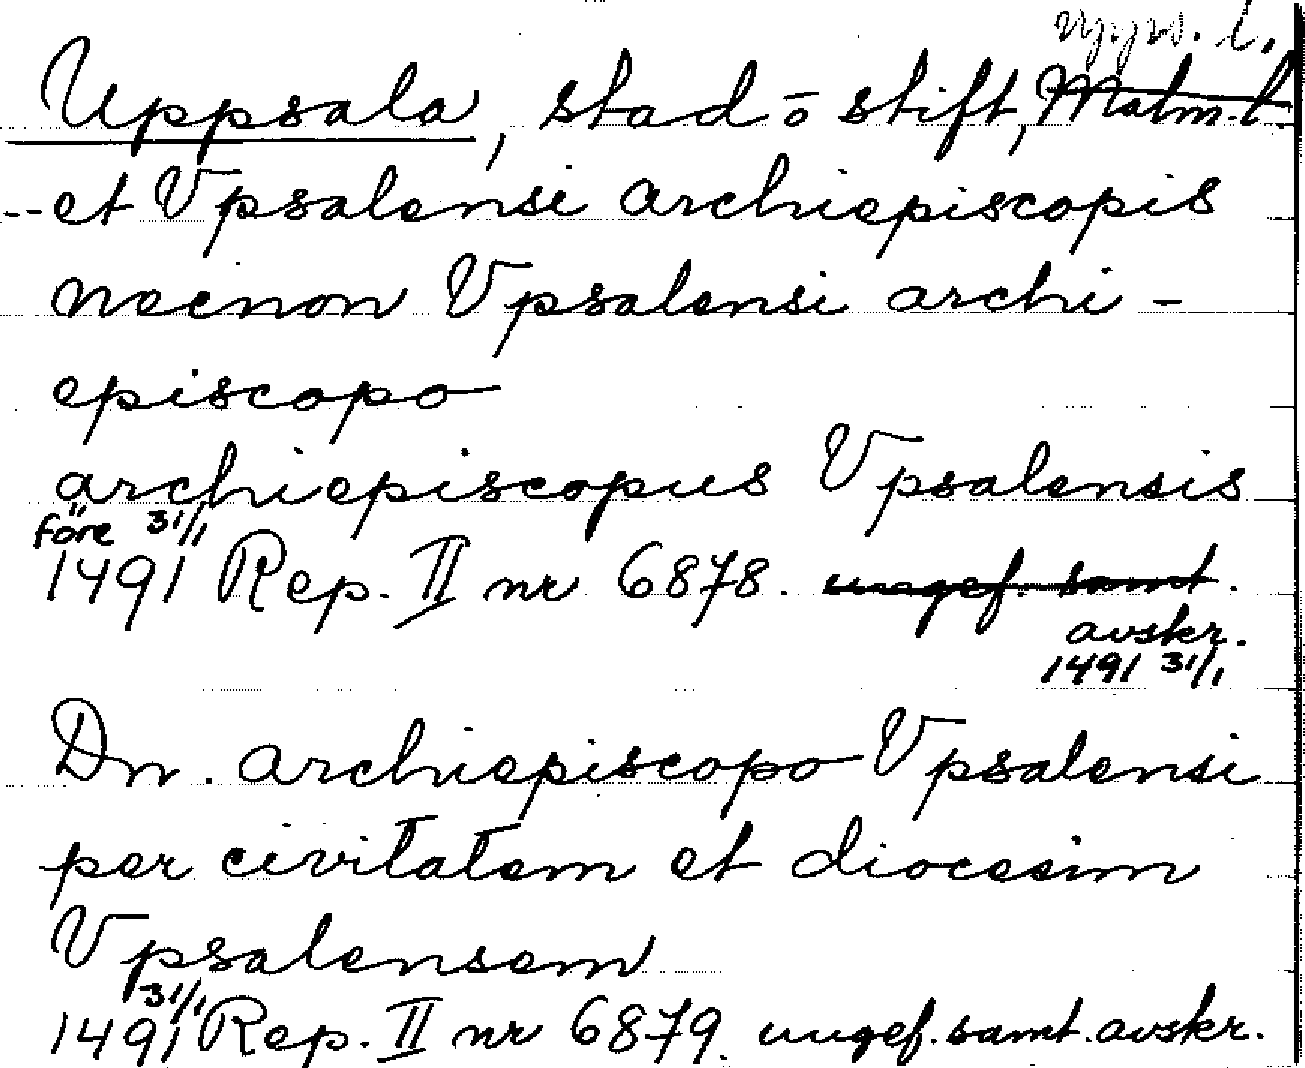 upps. l.
Uppsala, stad o stift, Malm. l
-- et Vpsalensi archiepiscopis
necnon Vpsalensi archi-
episcopo
archiepiscopus Vpsalensis
före 31/1
1491 Rep. II nr 6878. ungef. samt.
avskr.
1491 31/1
Dn. archiepiscopo Vpsalensi
per civitatem et diocesim
Vpsalensem
31/1
1491 Rep. II nr 6879. ungef. samt. avskr.